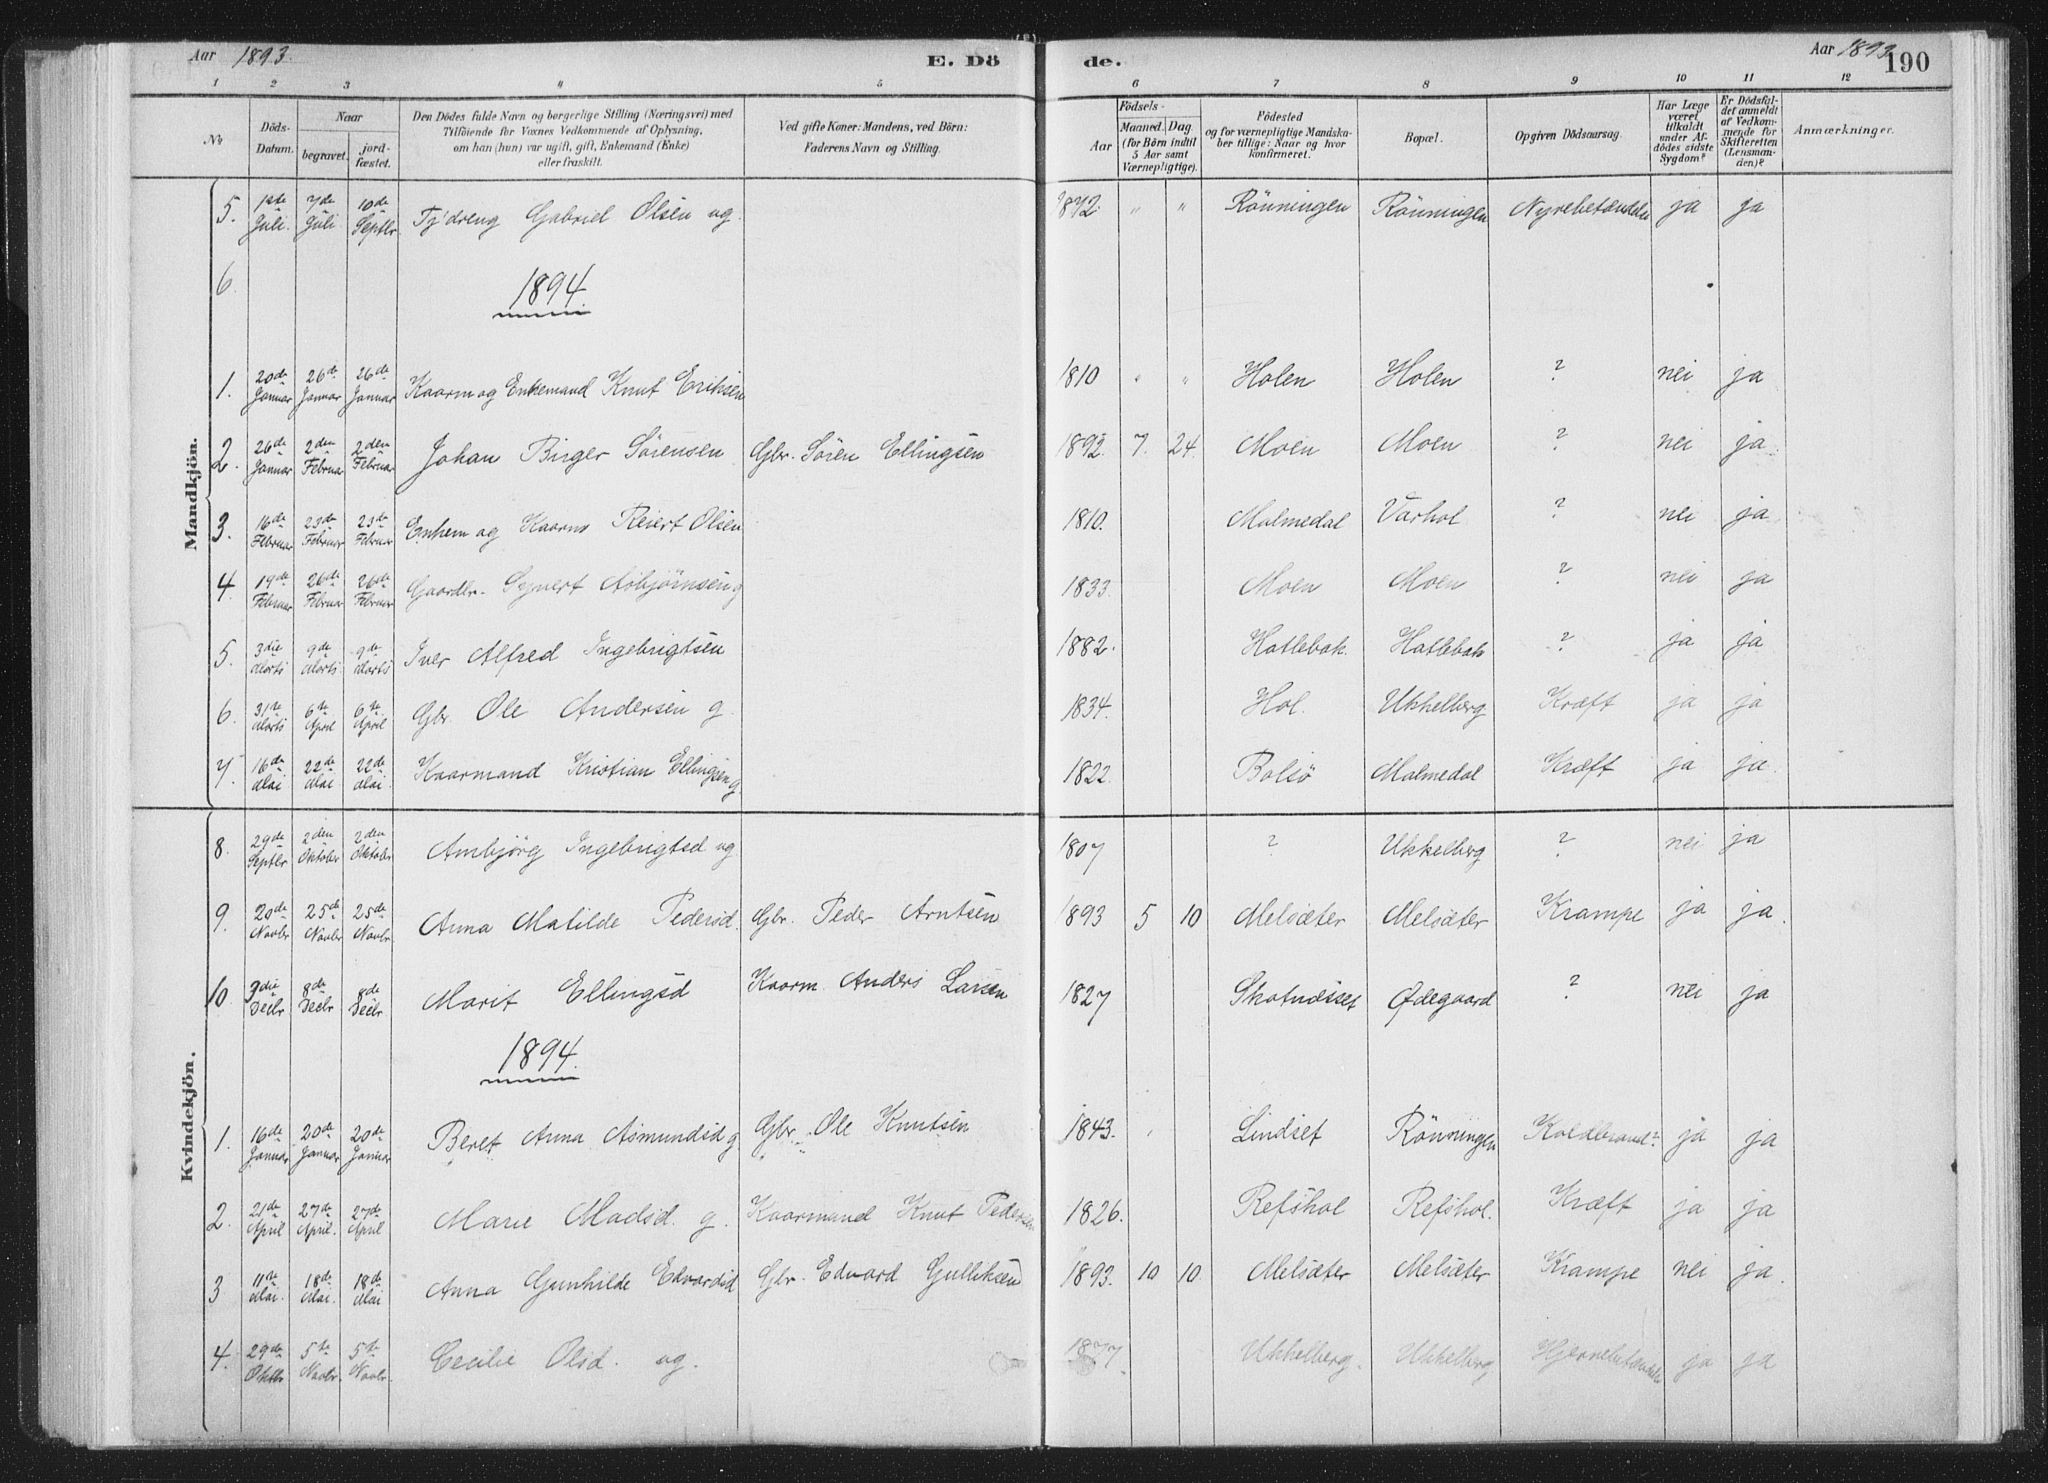 Aar 1893.
E. Dö
de.
Aar 1893
190
1 2 3 4 5 6 7 8 9 10 11 12
No
Döds-Datum.
Naar
begravet.
jord-fæstet.
Den Dödes fulde Navn og borgerlige Stilling (Næringsvei) med
Tilföiende for Voxnes Vedkommende af Oplysning,
om han (hun) var ugift, gift, Enkemand (Enke)
eller fraskilt.
Ved gifte Koner: Mandens, ved Börn:
Faderens Navn og Stilling.
Födsels-
Aar
Maaned. Dag
(for Börn indtil
5 Aar samt
Værnepligtige).
Födested
og for værnepligtige Mandska-
ber tillige: Naar og hvor
konfirmeret.
Bopæl.
Opgiven Dödsaarsag.
Har Læge
været
tilkaldt
under Af-
dödes sidste
Sygdom?
Er Dödsfal-
det anmeldt
af Vedkom-
mende for
Skifteretten
(Lensman-
den)?
Anmærkninger.
Mandkjön.
5. 1ste Juli. 7de Juli 10de Septbr. Tj'dreng Gabriel Olsen ug. 1872. " " Rönningen Rönningen Nyrebetændelse ja ja
6.
1894.
1. 20de Januar 26de Januar 26de Januar Kaarm og Enkemand Knut Eriksen 1810 " " Holen Holen ? nei ja
2. 26de Januar 2den Februar 2den Februar Johan Birger Sörensen Gbr. Sören Ellingsen 1892. 7. 24. Moen Moen ? nei ja.
3. 16de Februar 23de Februar 23de Februar Enkem og Kaarm Reiert Olsen 1810. Malmedal Varhol ? nei ja
4. 19de Februar 26de Februar 26de Februar Gaardbr. Syvert Asbjörnsen g 1833. Moen Moen ? nei ja
5. 3die Marts 9de Marts 9de Marts Iver Alfred Ingebrigtsen 1882. Hatlebak. Hatlebak ? ja ja
6. 31te Marts 6te April 6te April Gbr. Ole Andersen g. 1834. Hol. Ukkelberg Kræft ja ja
7. 16de Mai 22de Mai 22de Mai Kaarmand Kristian Ellingsen g. 1822. Bolsö Malmedal Kræft ja ja.
Kvindekjön.
8. 29de Septbr 2den Oktober 2den Oktober Ambjörg Ingebrigtsd ug 1807 ? Ukkelberg ? nei ja
9. 20de Novbr 25de Novbr 25de Novbr. Anna Matilde Pedersd. Gbr. Peder Arntsen 1893 5 10 Melsæter Melsæter Krampe ja ja.
10. 3die Decbr 8de Decbr 8de Decbr. Marit Ellingsd Kaarm. Anders Larsen 1827 Skotnesset Ödegaard ? nei ja
1894.
1. 16de Januar 20de Januar 20de Januar Beret Anna Asmundsd g Gbr. Ole Knutsen 1843. Lindset Rönningen Koldbrand? ja ja
2. 21de April 27de April. 27de April Marie Madsd. g. Kaarmand Knut Pedersen 1826. Refshol Refshol. Kræft ja ja
3 11te Mai. 18de Mai. 18de Mai Anna Gunhilde Edvardsd Gbr. Edvard Gulliksen 1893. 10 10. Melsæter Melsæter Krampe nei ja.
4. 29de Oktbr 5te Novbr 5te Novbr. Cecilie Olsd. ug. 1877. Ukkelberg. Ukkelberg Hjernebetændelse ja ja